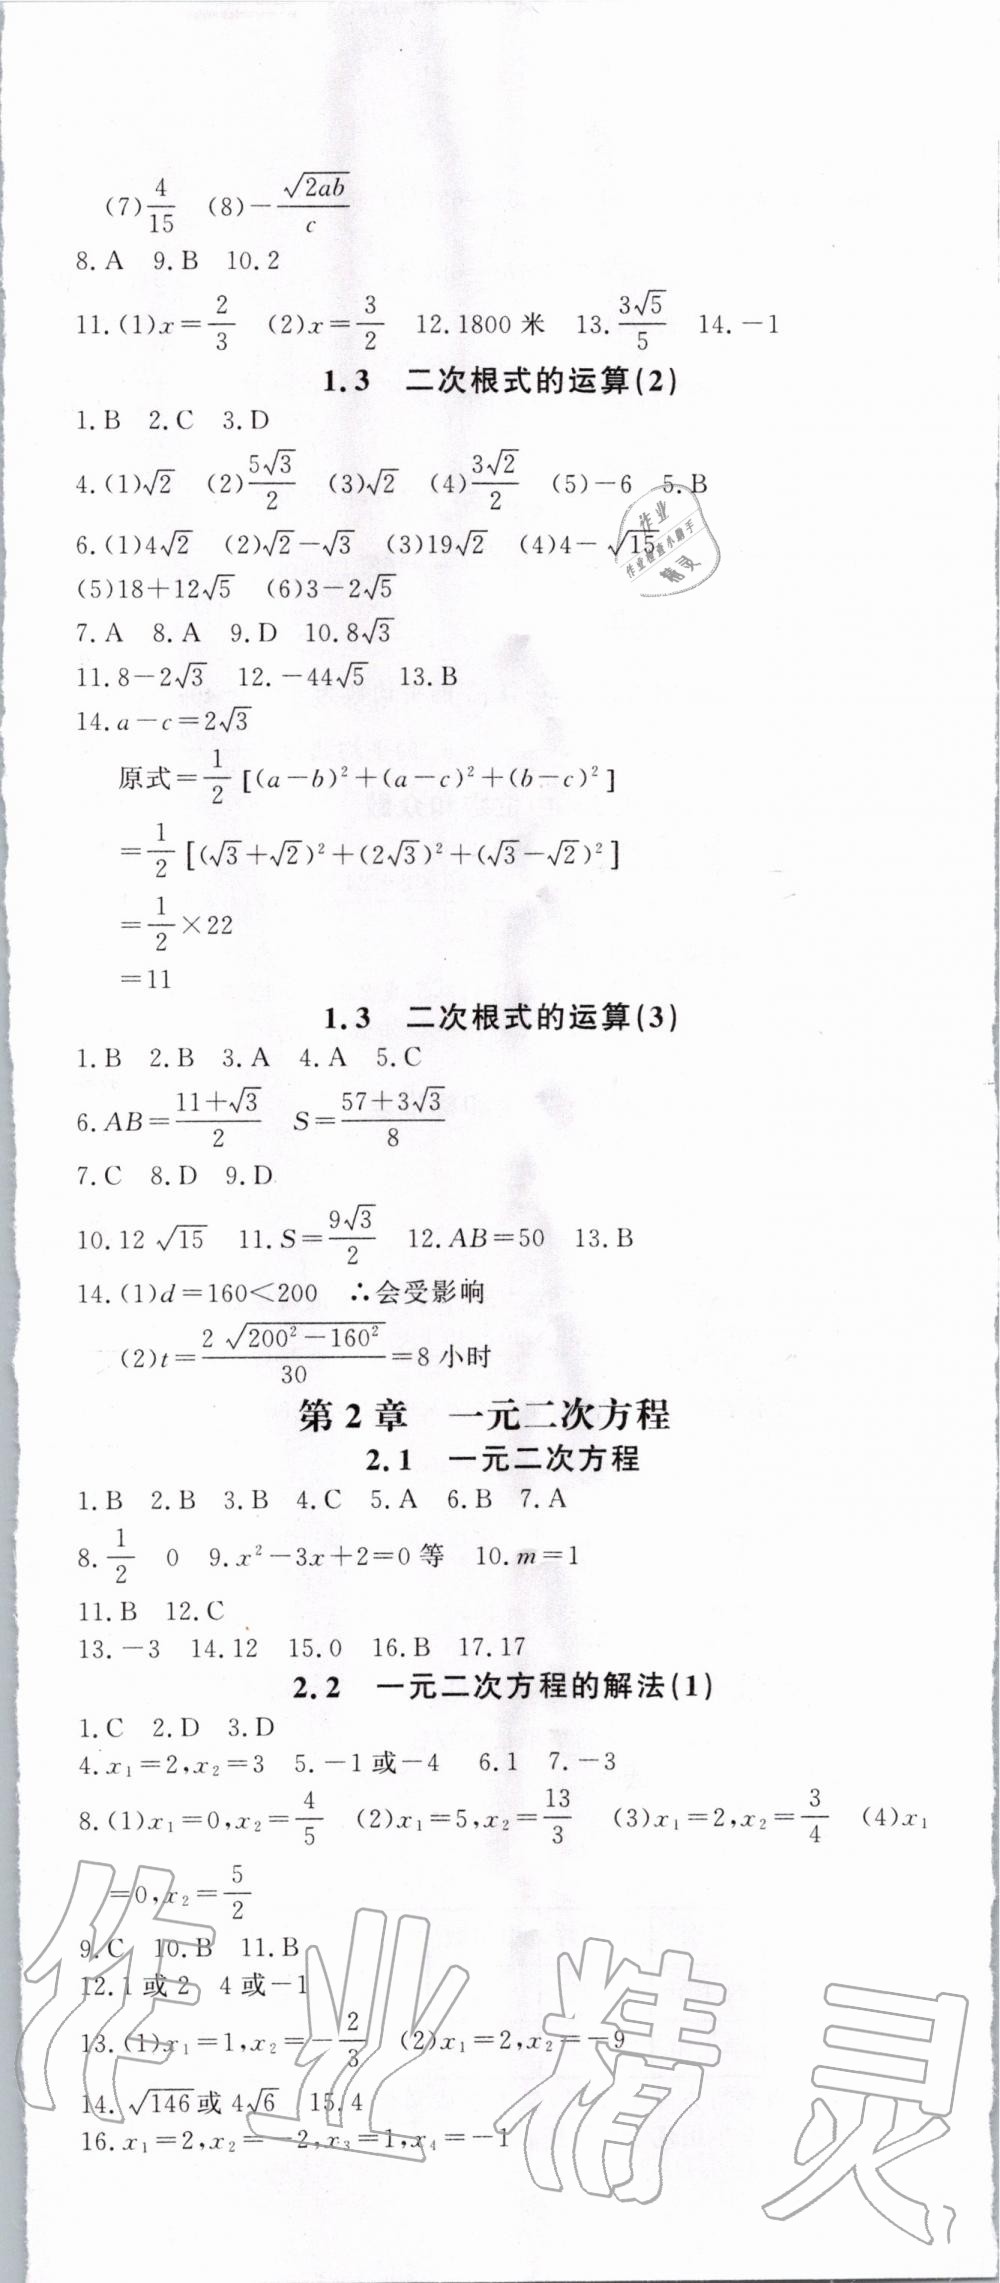 (7)4/15 (8)-√2ab/c
8.A 9.B 10.2
11.(1)x=2/3 (2)x=3/2 12.1800米 13.3√5/5 14.-1
1.3 二次根式的运算(2)
1.B 2.C 3.D
4.(1)√2 (2)5√3/2 (3)√2 (4)3√2/2 (5)-6 5.B
6.(1)4√2 (2)√2-√3 (3)19√2 (4)4-√15
(5)18+12√5 (6)3-2√5
7.A 8.A 9.D 10.8√3
11.8-2√3 12.-44√5 13.B
14.a-c=2√3
原式=1/2[(a-b)²+(a-c)²+(b-c)²]
=1/2[(√3+√2)²+(2√3)²+(√3-√2)²]
=1/2×22
=11
1.3 二次根式的运算(3)
1.B 2.B 3.A 4.A 5.C
6.AB=(11+√3)/2 S=(57+3√3)/8
7.C 8.D 9.D
10.12√15 11.S=9√3/2 12.AB=50 13.B
14.(1)d=160<200 ∴会受影响
(2)t=2√(200²-160²)/30=8小时
第2章 一元二次方程
2.1 一元二次方程
1.B 2.B 3.B 4.C 5.A 6.B 7.A
8.1/2 0 9.x²-3x+2=0等 10.m=1
11.B 12.C
13.-3 14.12 15.0 16.B 17.17
2.2 一元二次方程的解法(1)
1.C 2.D 3.D
4.x₁=2,x₂=3 5.-1或-4 6.1 7.-3
8.(1)x₁=0,x₂=4/5 (2)x₁=5,x₂=13/3 (3)x₁=2,x₂=3/4 (4)x₁
=0,x₂=5/2
9.C 10.B 11.B
12.1或2 4或-1
13.(1)x₁=1,x₂=-2/3 (2)x₁=2,x₂=-9
14.√146或4√6 15.4
16.x₁=2,x₂=-2,x₃=1,x₄=-1
作业
作业检查小助手
精灵
作业精灵